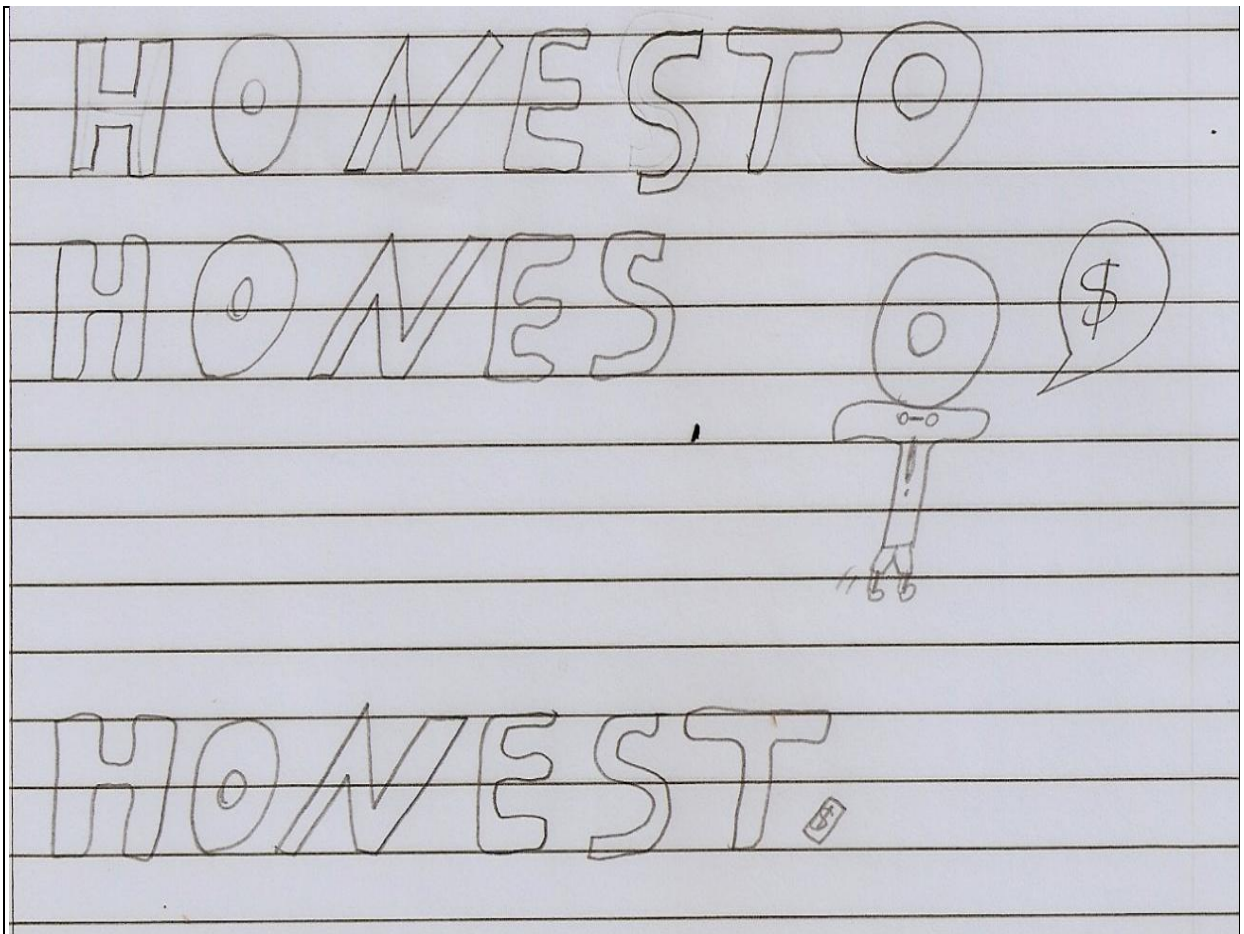 HONESTO
HONES O $
T
HONEST $